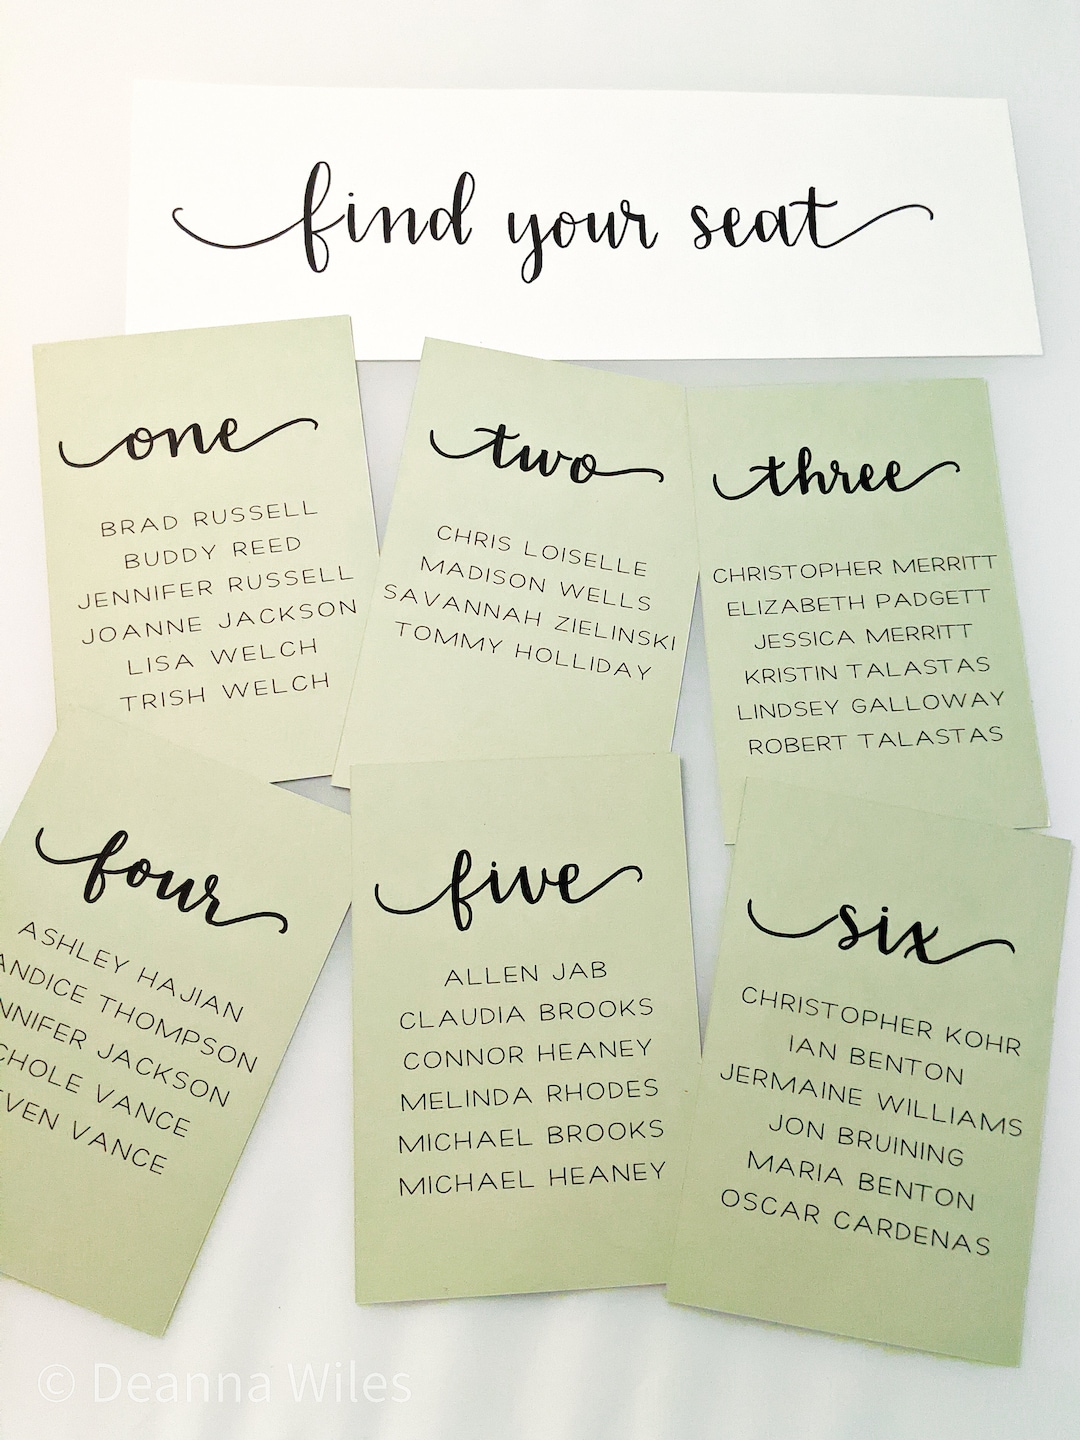 find your seat
one
BRAD RUSSELL
BUDDY REED
JENNIFER RUSSELL
JOANNE JACKSON
LISA WELCH
TRISH WELCH
two
CHRIS LOISELLE
MADISON WELLS
SAVANNAH ZIELINSKI
TOMMY HOLLIDAY
three
CHRISTOPHER MERRITT
ELIZABETH PADGETT
JESSICA MERRITT
KRISTIN TALASTAS
LINDSEY GALLOWAY
ROBERT TALASTAS
four
ASHLEY HAJIAN
ANDICE THOMPSON
NNIFER JACKSON
CHOLE VANCE
VEN VANCE
five
ALLEN JAB
CLAUDIA BROOKS
CONNOR HEANEY
MELINDA RHODES
MICHAEL BROOKS
MICHAEL HEANEY
six
CHRISTOPHER KOHR
IAN BENTON
JERMAINE WILLIAMS
JON BRUINING
MARIA BENTON
OSCAR CARDENAS
© Deanna Wiles